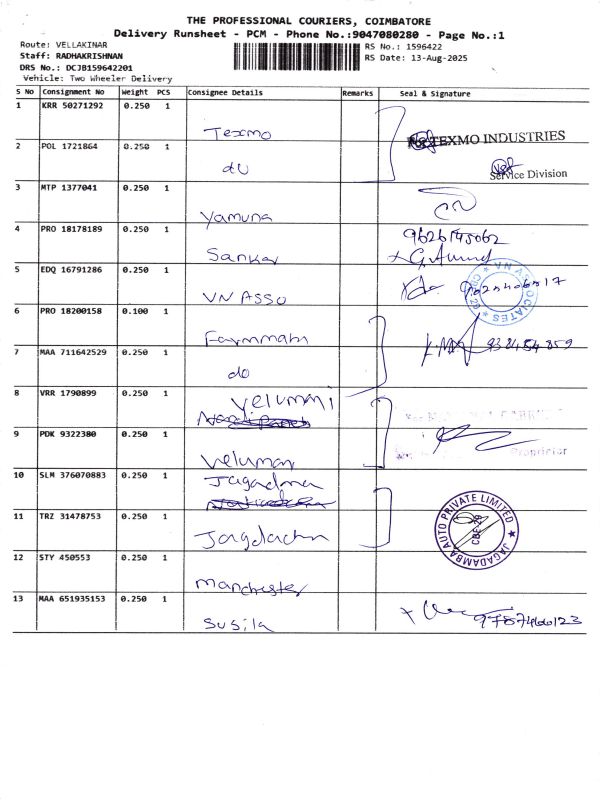 THE PROFESSIONAL COURIERS, COIMBATORE
Delivery Runsheet - PCM - Phone No.:9047080280 - Page No.:1
Route: VELLAKINAR
RS No.: 1596422
Staff: RADHAKRISHNAN
RS Date: 13-Aug-2025
DRS No.: DCJB159642201
Vehicle: Two Wheeler Delivery
S No Consignment No Weight PCS Consignee Details Remarks Seal & Signature
1 KRR 50271292 0.250 1
Texmo
For TEXMO INDUSTRIES
2 POL 1721864 0.250 1
do
Service Division
3 MTP 1377041 0.250 1
Yamuna
4 PRO 18178189 0.250 1
9626145062
Sankar
5 EDQ 16791286 0.250 1
VN ASSO
VN ASSOCIATES
6 PRO 18200158 0.100 1
7 MAA 711642529 0.250 1
do
8 VRR 1790899 0.250 1
velumani
9 PDK 9322380 0.250 1
Proprietor
10 SLM 376070883 0.250 1
11 TRZ 31478753 0.250 1
JAGADAMBA AUTO PRIVATE LIMITED
CBE-29
12 STY 450553 0.250 1
Manchester
13 MAA 651935153 0.250 1
Susila
9787466123